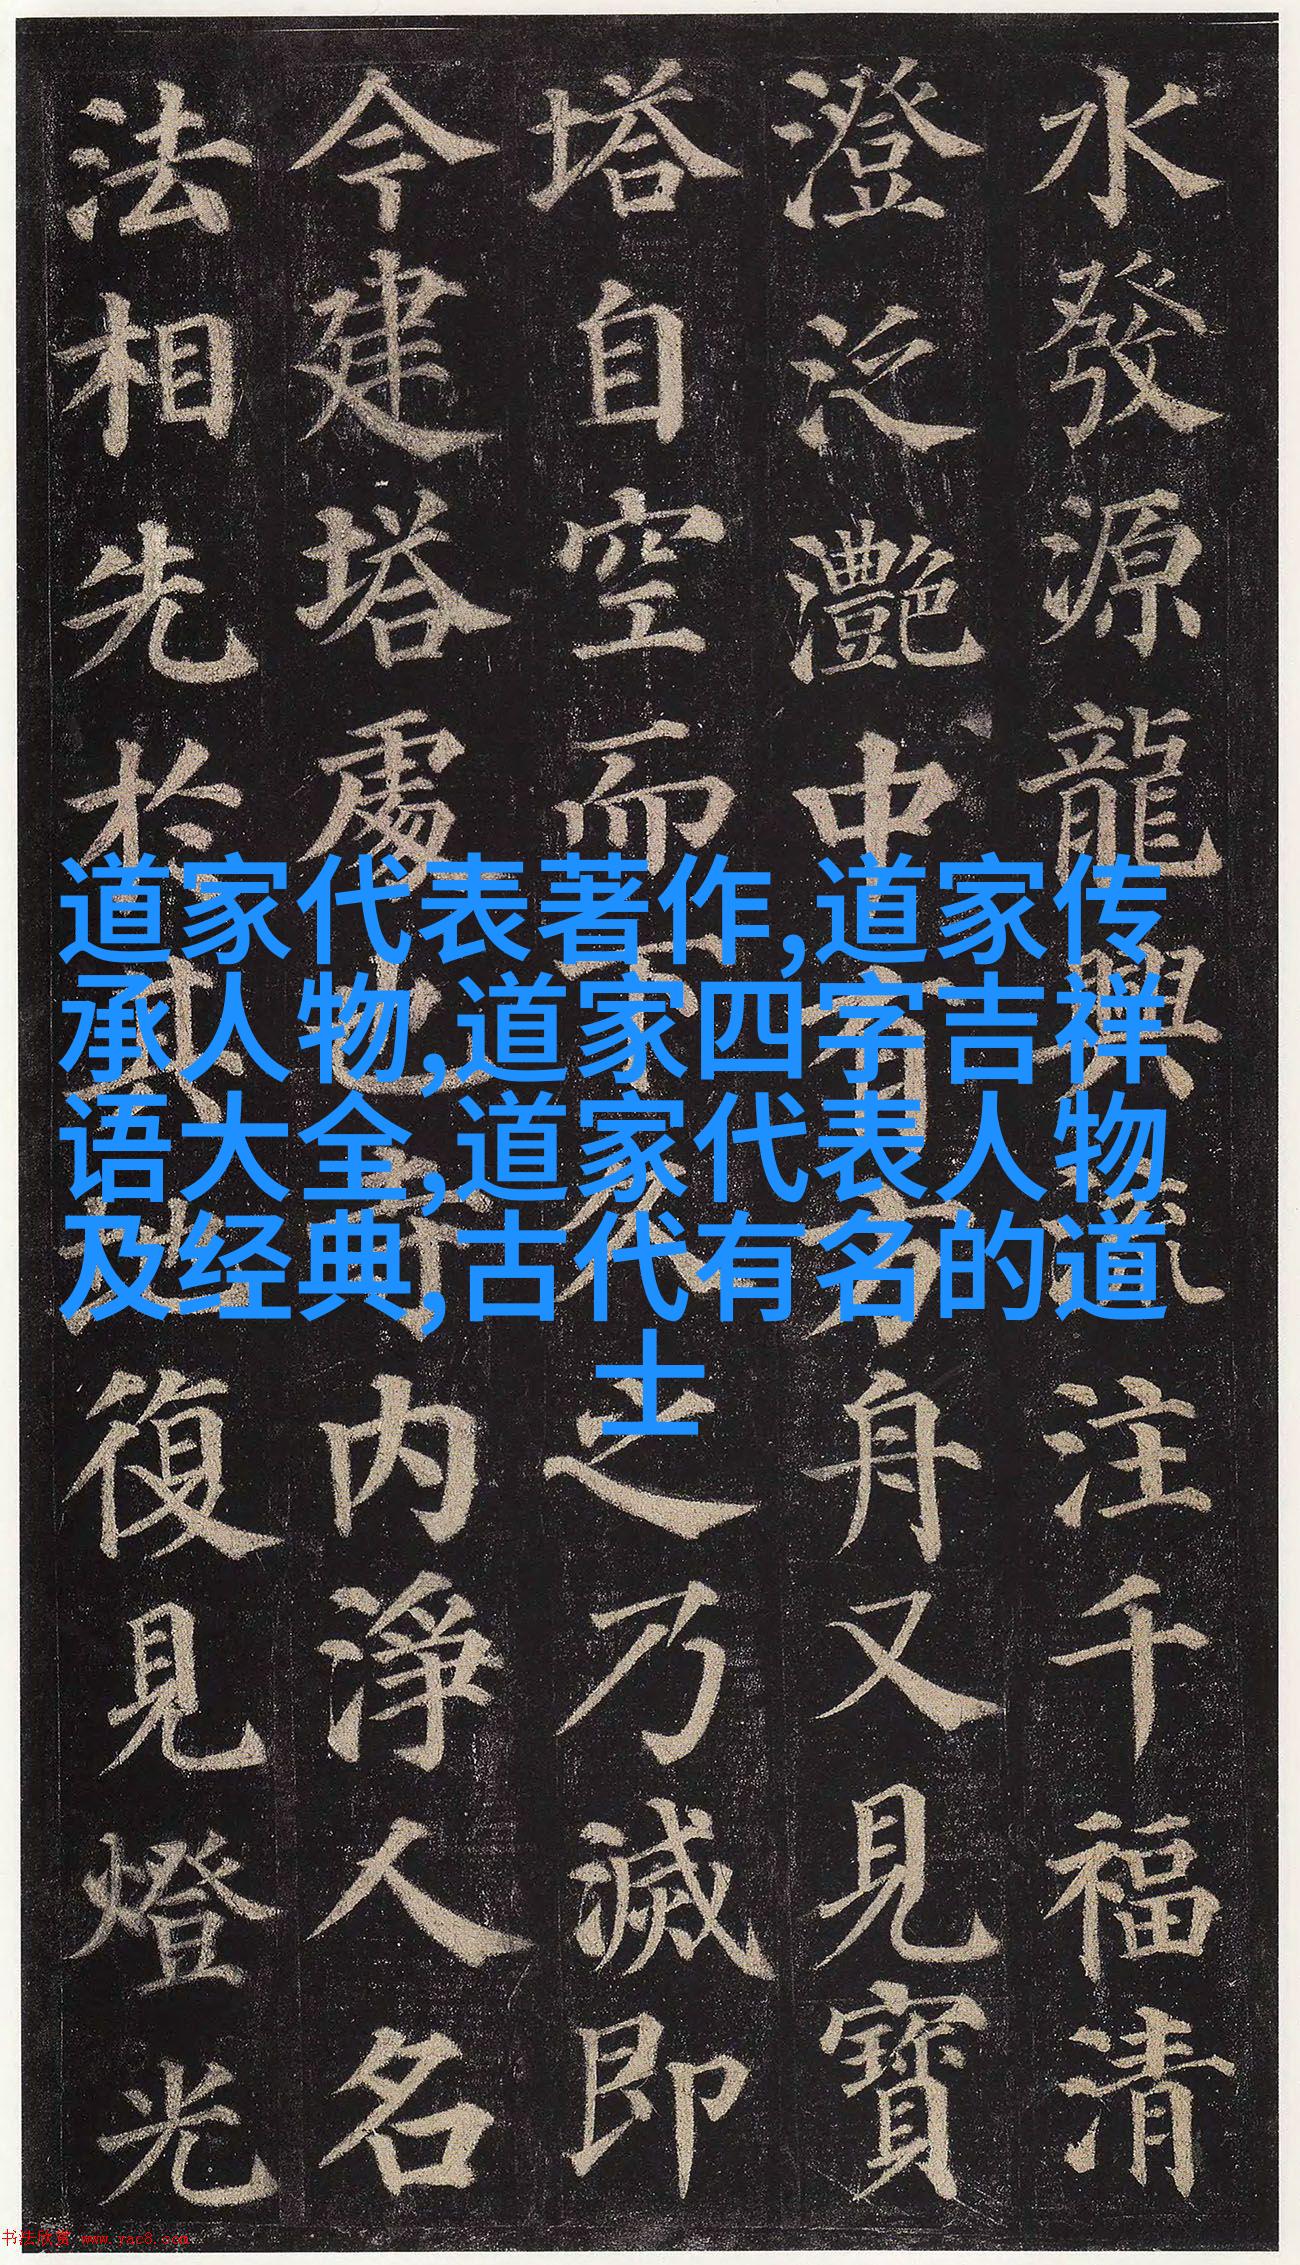 水發源龍興流注千福清
澄泛灩中有方舟又見寶
塔自空而下久之乃滅即
今建塔處也寺内淨人名
法相先於其地復見燈光
道家代表著作,道家传
承人物,道家四字吉祥
语大全,道家代表人物
及经典,古代有名的道
士
书法欣赏 www.yac8.com